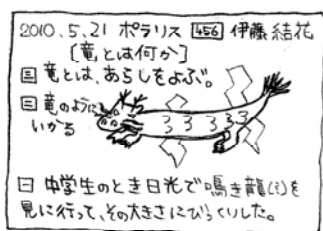 2010.5.21 ポラリス 456 伊藤結花
[竜とは何か]
三 竜とは、あらしをよぶ。
二 竜のように
いかる
33333
一 中学生のとき日光で鳴き龍(?)を
見に行って、その大きさにびっくりした。